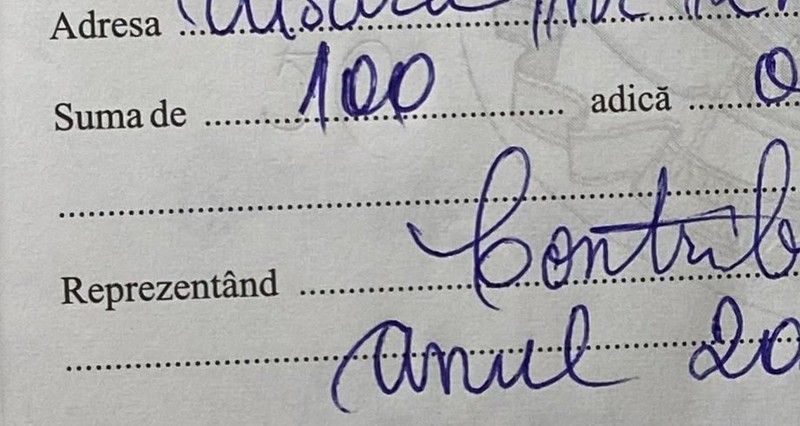 Adresa
Suma de 100 adică
Reprezentând Contrib
anul 20